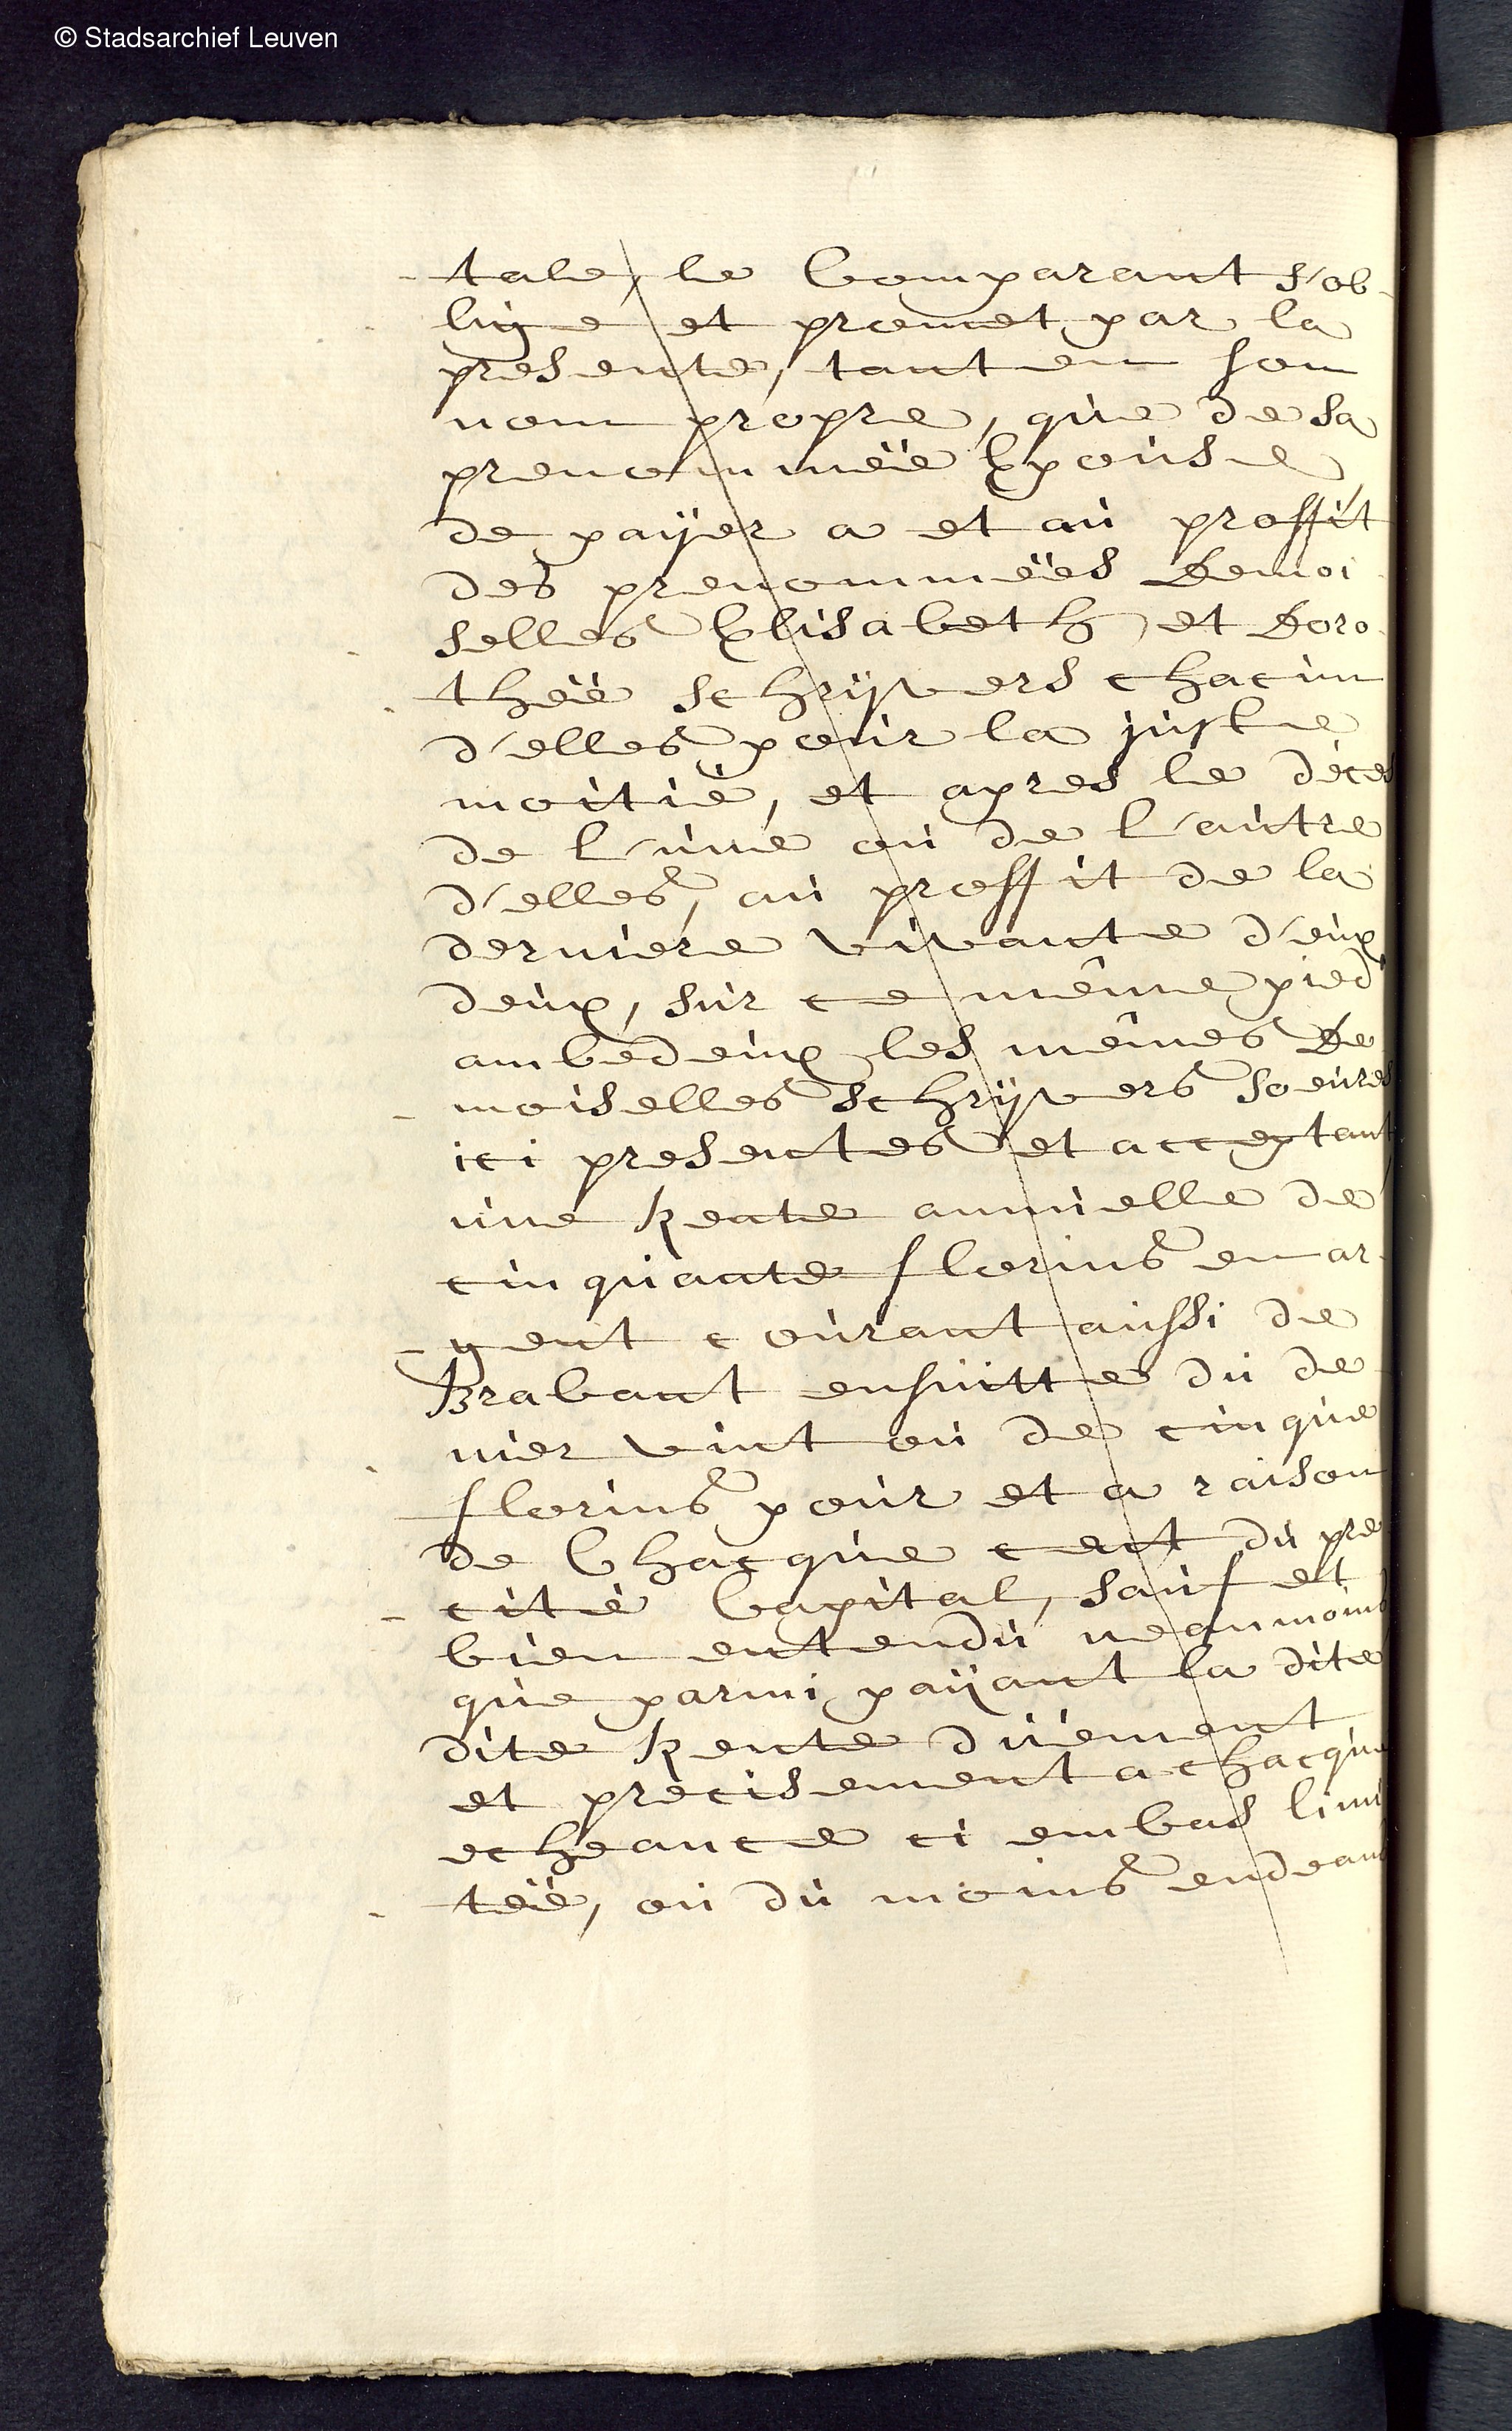 © Stadsarchief Leuven
tale, le Comparant s'ob-
lige et promet par la
presente, tant en son
nom propre, que de sa
prenommëe Epouse
de paÿer a et au proffit
des prenommëes Demoi
selles Elisabeth et Doro
thëe Schrijvers chacun
d'elles pour la juste
moitié, et apres le déces
de l'une ou de l'autre
d'elles, au proffit de la
derniere vivante d'eux
deux, sur ce même pied
ambedeux les mêmes De
moiselles Schrijvers soeures
ici presentes et acceptant
une Rente annuelle de
cinquante florins en ar-
gent courant aussi de
Brabant ensuitte du de
nier vint ou de cinque
florins pour et a raison
de Chacque cent du pre
cité Capital, sauf et
bien entendu neanmoins
que parmi paÿant la dite
dite Rente duëment
et precisement a chacque
echeance ci embas limi
tëe, ou du moins endeans